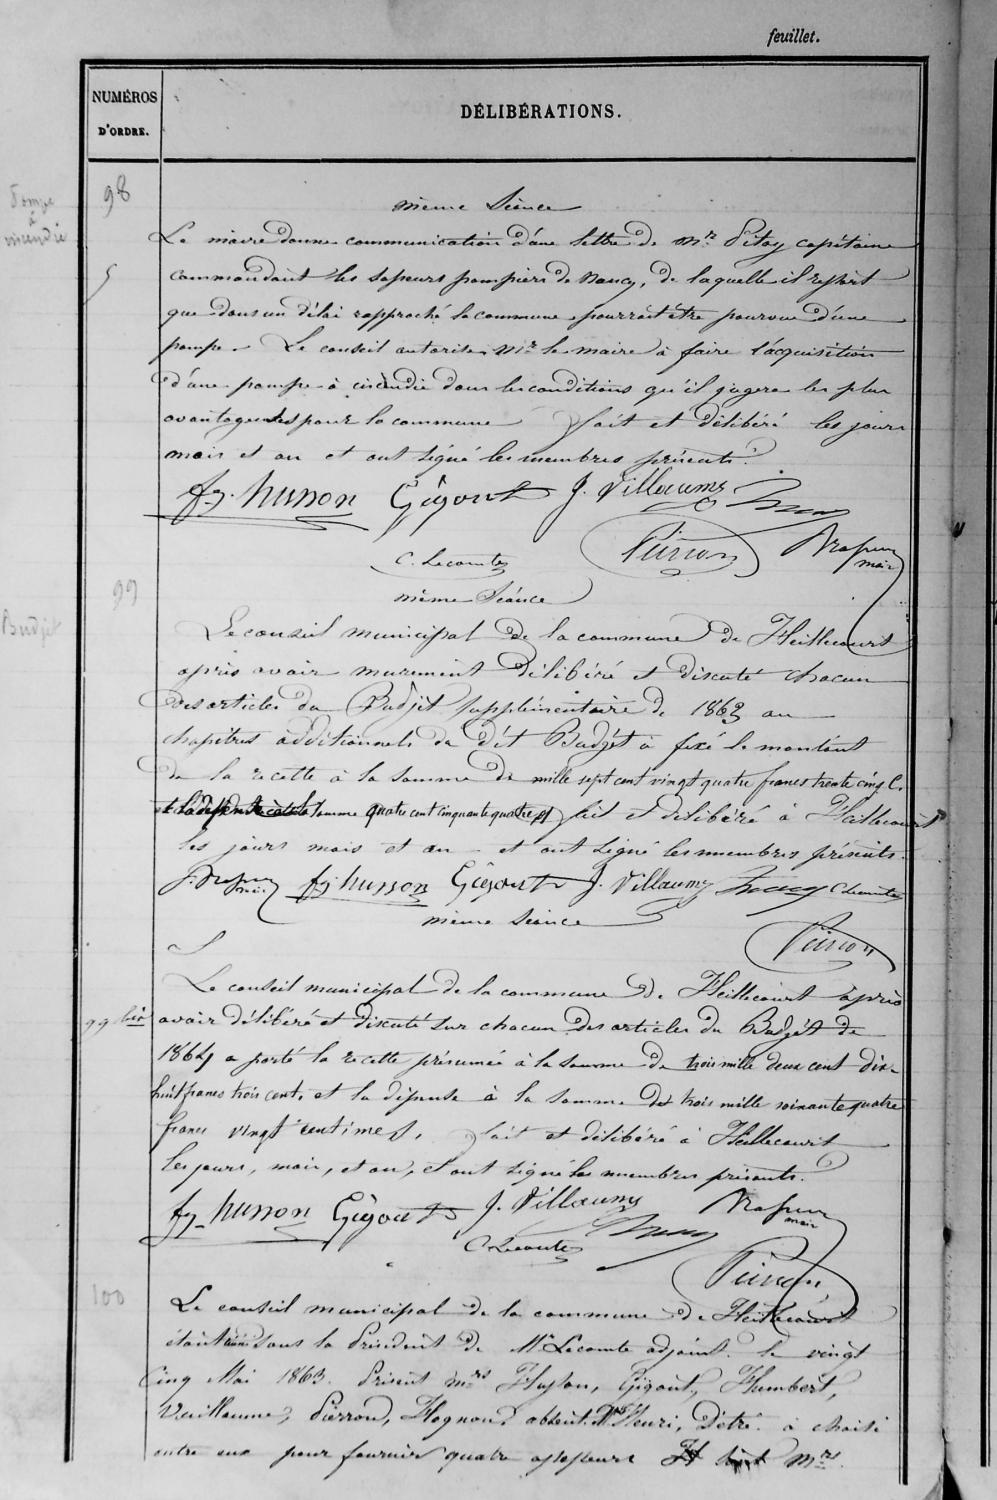 feuillet.
NUMÉROS
D'ORDRE.
DÉLIBÉRATIONS.
Pompe
à
incendie
98
même Séance
Le maire donne communication d'une lettre de Mr. Pitoy capitaine
commandant les sapeurs pompiers de Nancy, de laquelle il ressort
que dans un délai rapproché la commune pourrait être pourvue d'une
pompe. Le conseil autorise Mr le maire à faire l'acquisition
d'une pompe à incendie dans les conditions qu'il jugera les plus
avantageuses pour la commune fait et délibéré les jours
mois et an et ont signé les membres présents.
fs. husson Gigout J. Villaume
Pierron
maire
C. Lecomte
99
même Séance
Budjet
Le conseil municipal de la commune de Heillecourt
après avoir murement délibéré et discuté chacun
des articles du Budjet supplémentaire de 1863 au
chapitres additionnels du dit Budjet à fixé le montant
de la recette à la somme de mille sept cent vingt quatre francs trente cinq C.
et la dépense à la somme quatre cent cinquante quatre f fait et délibéré à Heillecourt
les jours mois et an et ont signé les membres présents.
maire fs. husson Gigout J. Villaume C Lecomte
même Séance
Pierron
Le conseil municipal de la commune de Heillecourt après
99 bis
avoir délibéré et discuté sur chacun des articles du Budjet de
1864 a porté la recette présumée à la somme de trois mille deux cent dix-
huit francs trois cent. et la dépense à la somme de trois mille soixante quatre
francs vingt centimes, fait et délibéré à Heillecourt
les jours, mois, et an, et ont signé les membres présents.
fs. husson Gigout J. Villaume
maire
C. Lecomte
Pierron
100
Le conseil municipal de la commune de Heillecourt
étant réuni sous la Président de Mr Lecomte adjoint. le vingt
Cinq Mai 1863. Présent mrs Husson, Gigout, Humbert,
Vuillaume, Pierron, Hognon, absent Mrs Henri, Détré. à choisi
entre eux pour fournir quatre assesseurs mrs.